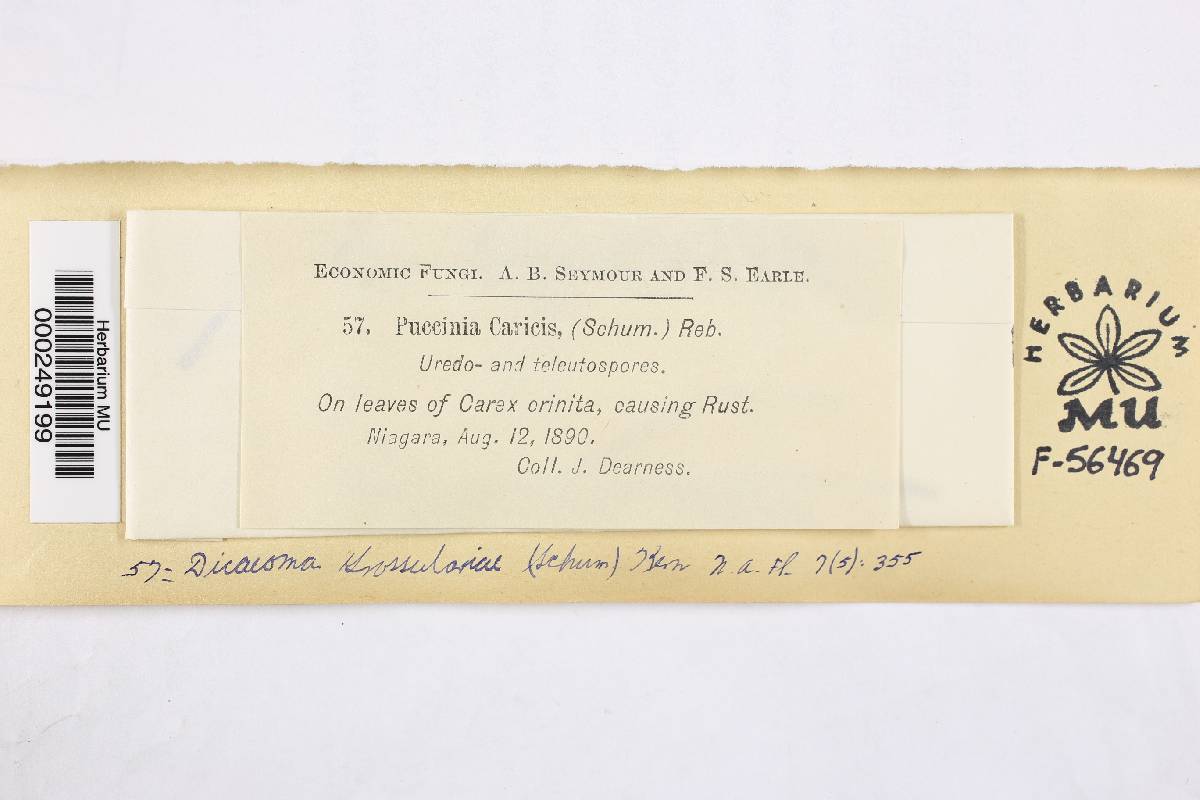 Herbarium MU
000249199
ECONOMIC FUNGI. A. B. SEYMOUR AND F. S. EARLE.
57. Puccinia Caricis, (Schum.) Reb.
Uredo- and teleutospores.
On leaves of Carex crinita, causing Rust.
Niagara, Aug. 12, 1890.
Coll. J. Dearness.
HERBARIUM
MU
F-56469
57= Dicaeoma Grossulariae (Schum) Kern N.A. Fl. 7(5): 355